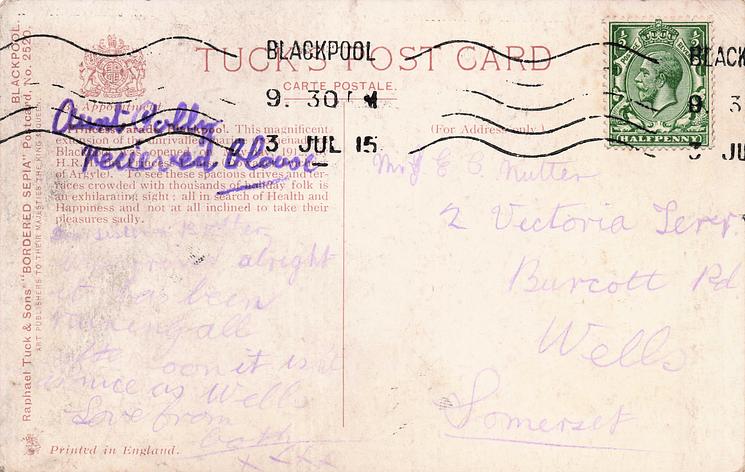 TUCK'S POST CARD
CARTE POSTALE.
By Appointment
BLACKPOOL
9. 30
3 JUL 15
BLACK
9. 3
3 JU
HALFPENNY
Aunt
received blouse
Princess Parade, Blackpool. This magnificent
extension of the unrivalled
Black opened 191
H.R.
of Argyle). To see these spacious drives and ter-
races crowded with thousands of holiday folk is
an exhilarating sight; all in search of Health and
Happiness and not at all inclined to take their
pleasures sadly.
(For Address only.)
E C Nutter
2 Victoria Terr.
Burcott Rd
Wells
Somerset
Dear sister & Brother
alright
it has been
raining all
it isn't
as nice as Wells
Love from
both
xxxx
Raphael Tuck & Sons' "BORDERED SEPIA" Postcard, No. 2520. BLACKPOOL.
ART PUBLISHERS TO THEIR MAJESTIES THE KING & QUEEN
Printed in England.